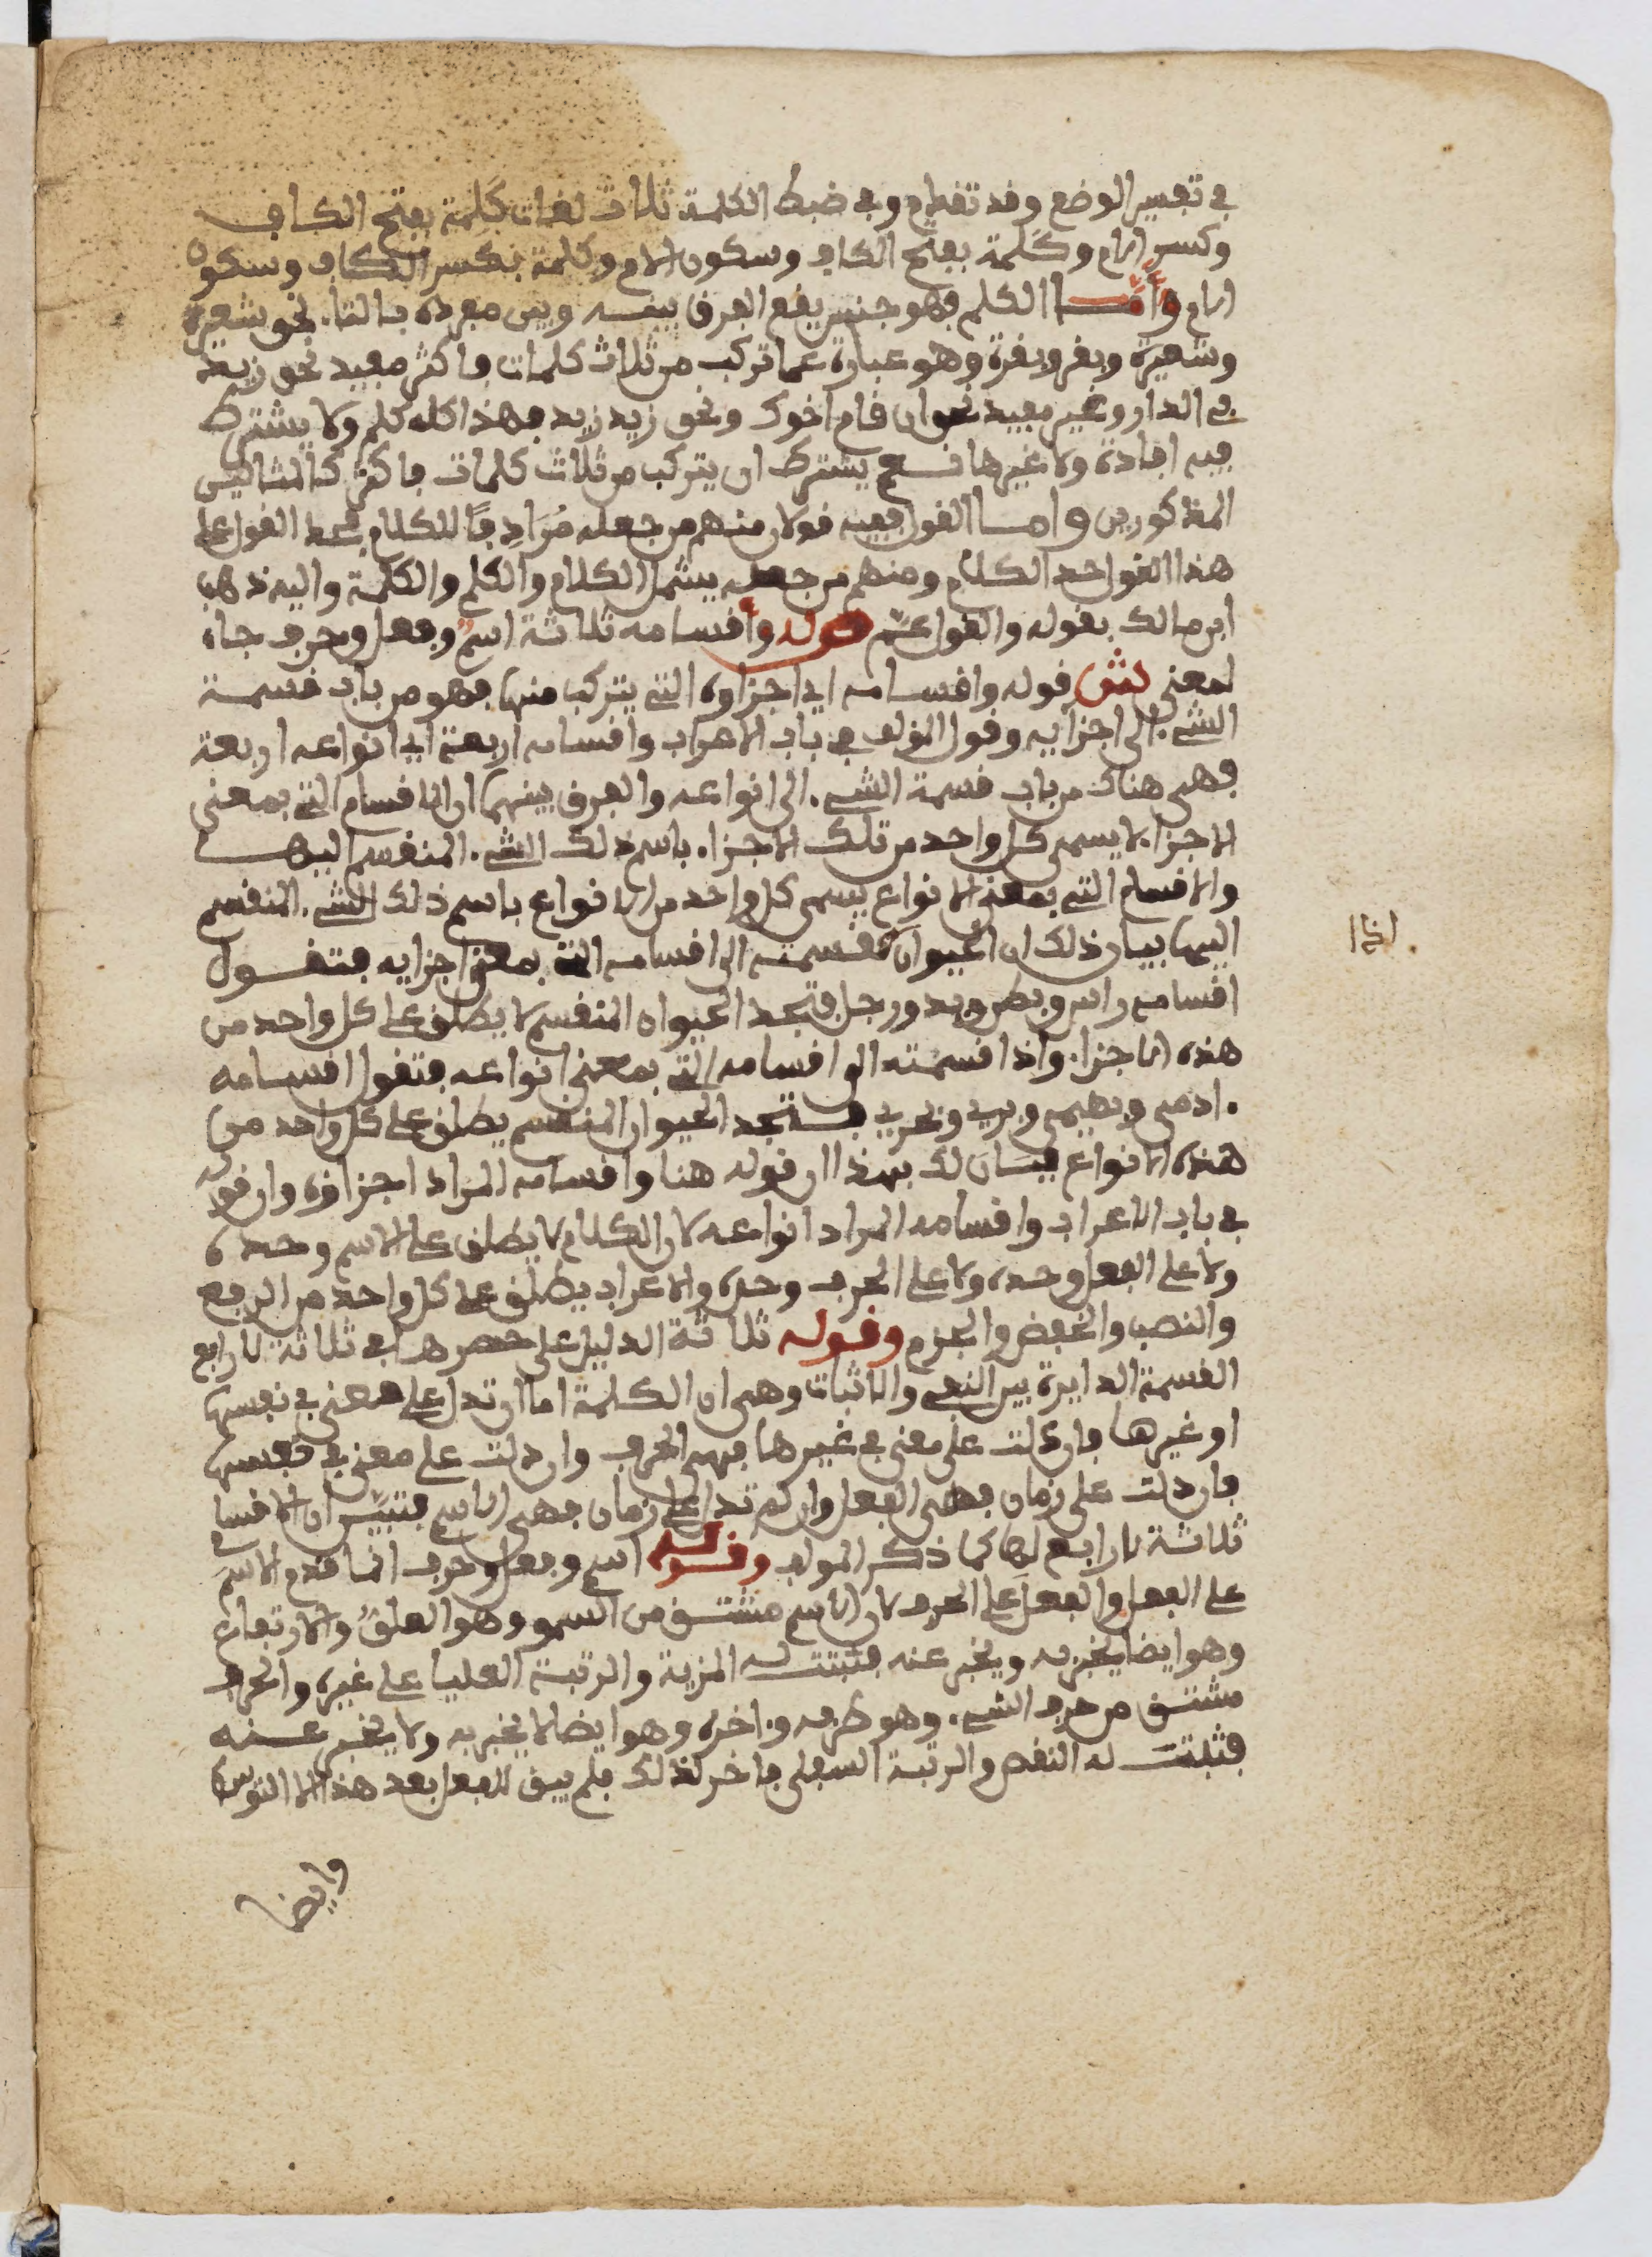 في تفسير الوضع وقد تقدم وفي ضبط الكلمة ثلاث لغات كَلِمة بفتح الكاف
وكسر اللام وكَلمة بفتح الكاف وسكون اللام وكِلمة بكسر الكاف وسكون
اللام وأمّا الكلم فهو جنس يقع الفرق بينه وبين مفرده بالتاء نحو شعير
وشعيرة وبقر وبقرة وهو عبارة عما تركب من ثلاث كلمات فاكثر مفيد نحو زيد
في الدار وغير مفيد نحو ان قام اخوك ونحو زيد زيد زيد فهذا كله كلم ولا يشترط
فيه افادة ولا غيرها نعم يشترط ان يتركب من ثلاث كلمات فاكثر كالمثالين
المذكورين واما القول ففيه قولان منهم من جعله مُرَادِفًا للكلام فحد القول على
هذا القول حد الكلام ومنهم من جعله يشمل الكلام والكلم والكلمة واليه ذهب
ابن مالك بقوله والقول عمّ قوله وأقسامه ثلاثة اسمٌ وفعل وحرف جاء
لمعنى ش قوله واقسامه اي اجزاوه التي يتركب منها فهو من باب قسمة
الشيء الى اجزايه وقول المؤلف في باب الاعراب واقسامه اربعة اي انواعه اربعة
فهي هناك من باب قسمة الشيء الى انواعه والفرق بينهما ان الاقسام التي بمعنى
الاجزاء لا يسمى كل واحد من تلك الاجزاء باسم ذلك الشيء المنقسم اليها
والاقسام التي بمعنى الانواع يسمى كل واحد من الانواع باسم ذلك الشيء المنقسم
اليها بيان ذلك ان الحيوان قسمته الى اقسامه التي بمعنى اجزايه فتقول
اذا
اقسامه راس وبطن ويد ورجل فتجد الحيوان المنقسم لا يطلق على كل واحد من
هذه الاجزاء واذا قسمته الى اقسامه التي بمعنى انواعه فتقول اقسامه
ادمي وبهيمي وبري وبحري فتجد الحيوان المنقسم يطلق على كل واحد من
هذه الانواع فبَانَ لك بهذا ان قوله هنا واقسامه المراد اجزاؤه وان قوله
في باب الاعراب واقسامه المراد انواعه لان الكلام لا يطلق على الاسم وحده
ولا على الفعل وحده ولا على الحرف وحده والاعراب يطلق على كل واحد من الرفع
والنصب والخفض والجزم وقوله ثلاثة الدليل على حصرها في ثلاثة لا رابع
القسمة الدايرة بين النفي والاثبات وهي ان الكلمة اما ان تدل على معنى في نفسها
او غيرها فان دلت على معنى في غيرها فهي الحرف وان دلت على معنى في نفسها
فان دلت على زمان فهي الفعل وان لم تدل على زمان فهي الاسم فتبيّن ان الاقسام
ثلاثة لا رابع لها كما ذكر المولف وقوله اسم وفعل وحرف انما قدم الاسمَ
على الفعل والفعلَ على الحرف لان الاسم مشتق من السمو وهو العلوُّ والارتفاع
وهو ايضا يخبر به ويخبر عنه فثبتت له المزية والرتبة العليا على غيره والحرف
مشتق من حرف الشيء وهو طرفه واخره وهو ايضا لا يخبر به ولا يخبر عنه
فثبتت له النقص والرتبة السفلى فاخر لذلك فلم يبق للفعل بعد هذا الا التوسط
وايضا